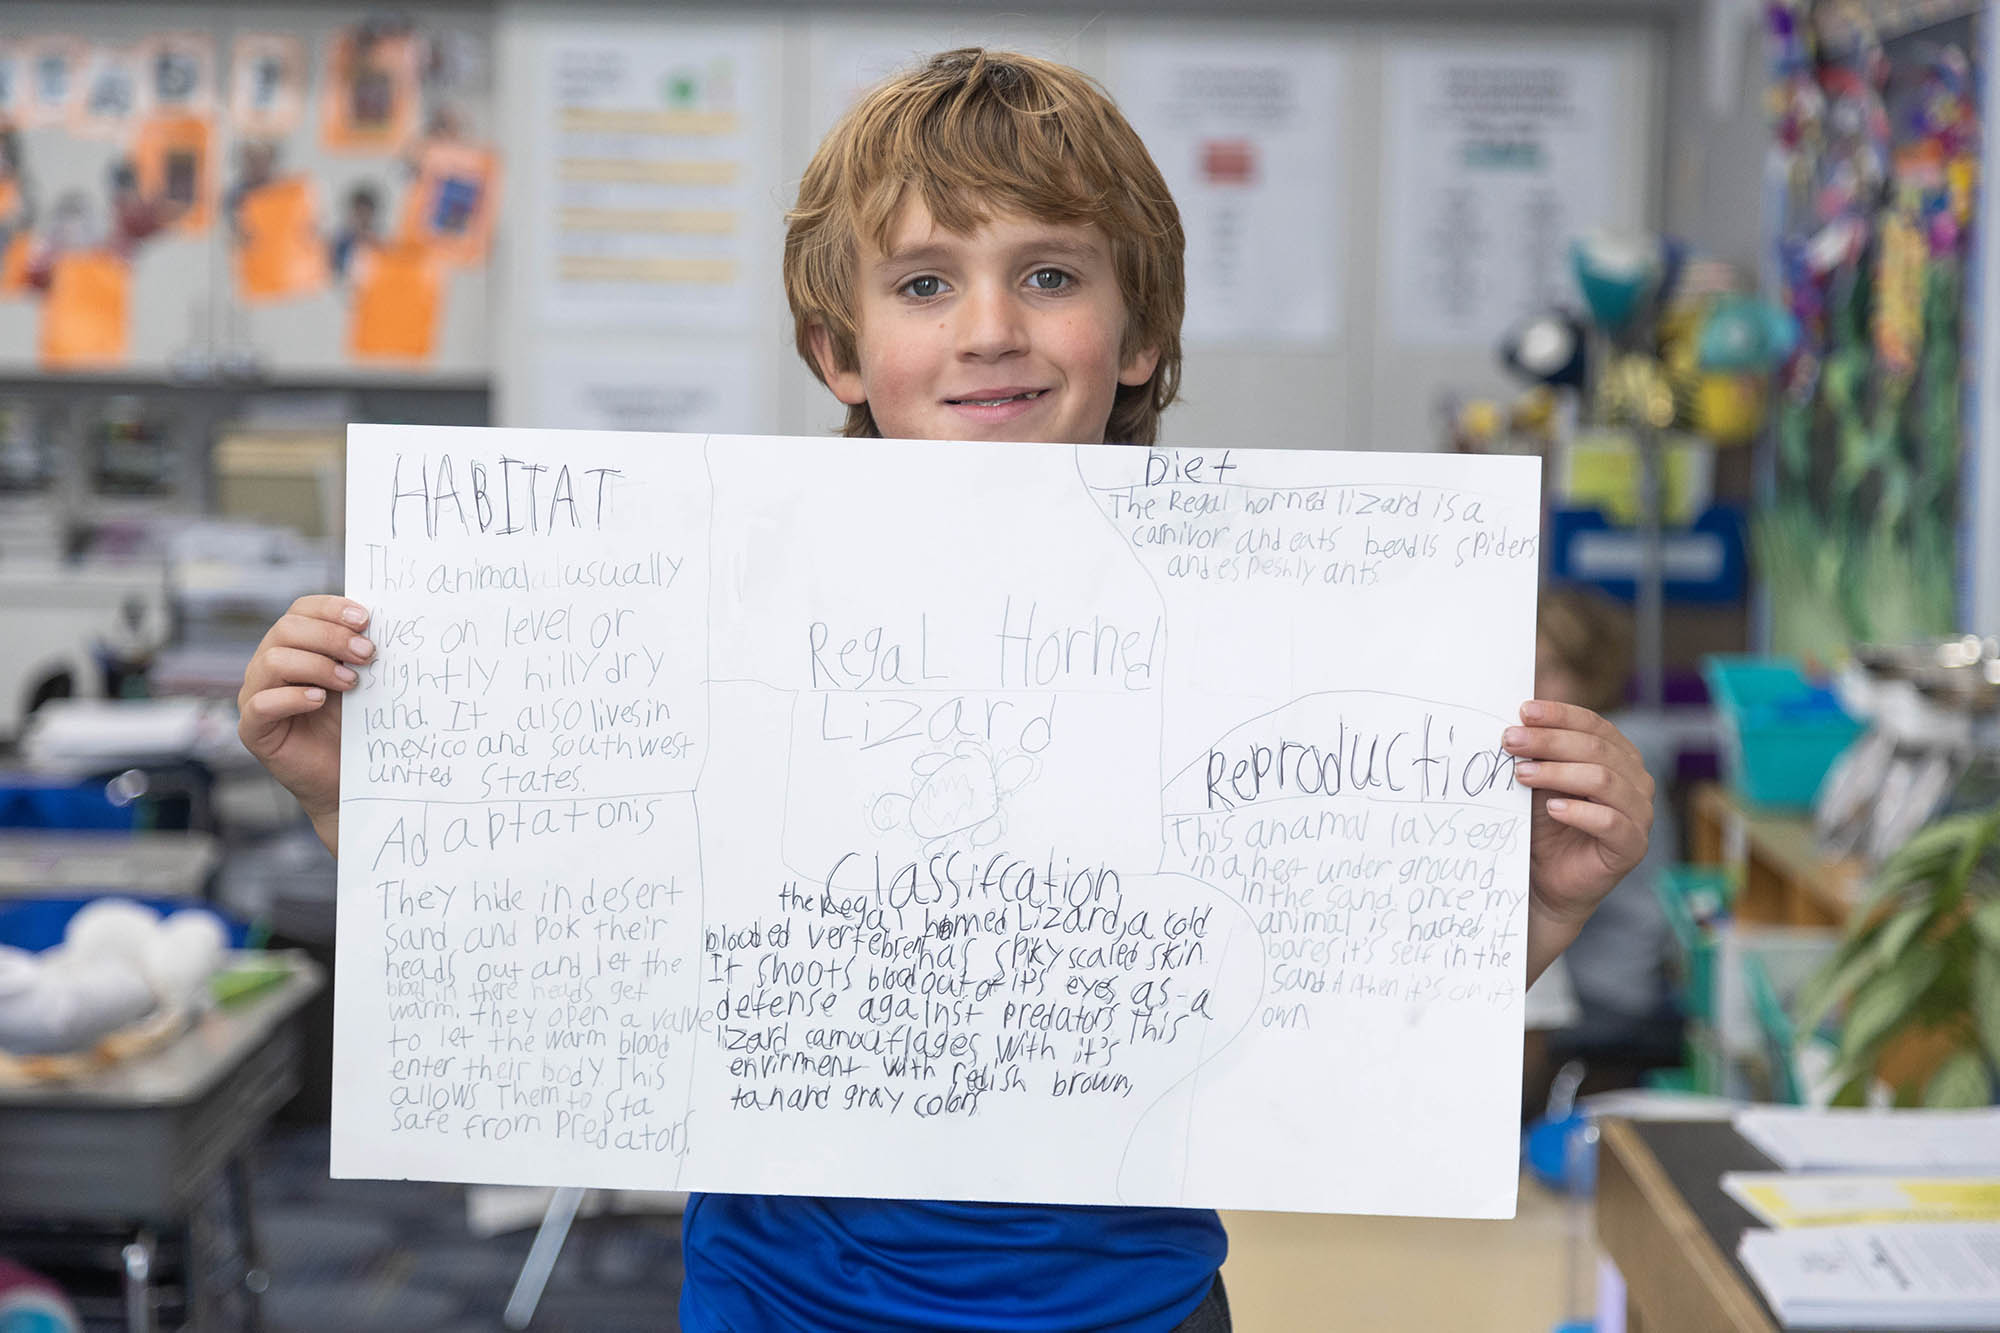 HABITAT
This animal usually
lives on level or
slightly hilly dry
land. It also lives in
mexico and southwest
united states.
Adaptatonis
They hide in desert
sand and pok their
heads out and let the
blood in there heads get
warm. they open a valve
to let the warm blood
enter their body. This
allows Them to sta
safe from predators.
Regal Horned
Lizard
Classifcation
the Regal horned Lizard, a cold
blooded vertebren has spiky scaled skin.
It shoots blood out of it's eyes as a
defense against predators. This
lizard camouflages with it's
envirment with redish brown,
tan and gray colors
Diet
The Regal horned lizard is a
carnivor and eats beadls spiders
and espeshly ants.
Reproduction
This anamal lays eggs
in a nest under ground
in the sand. once my
animal is hached it
bares it's self in the
sand. then it's on it's
own